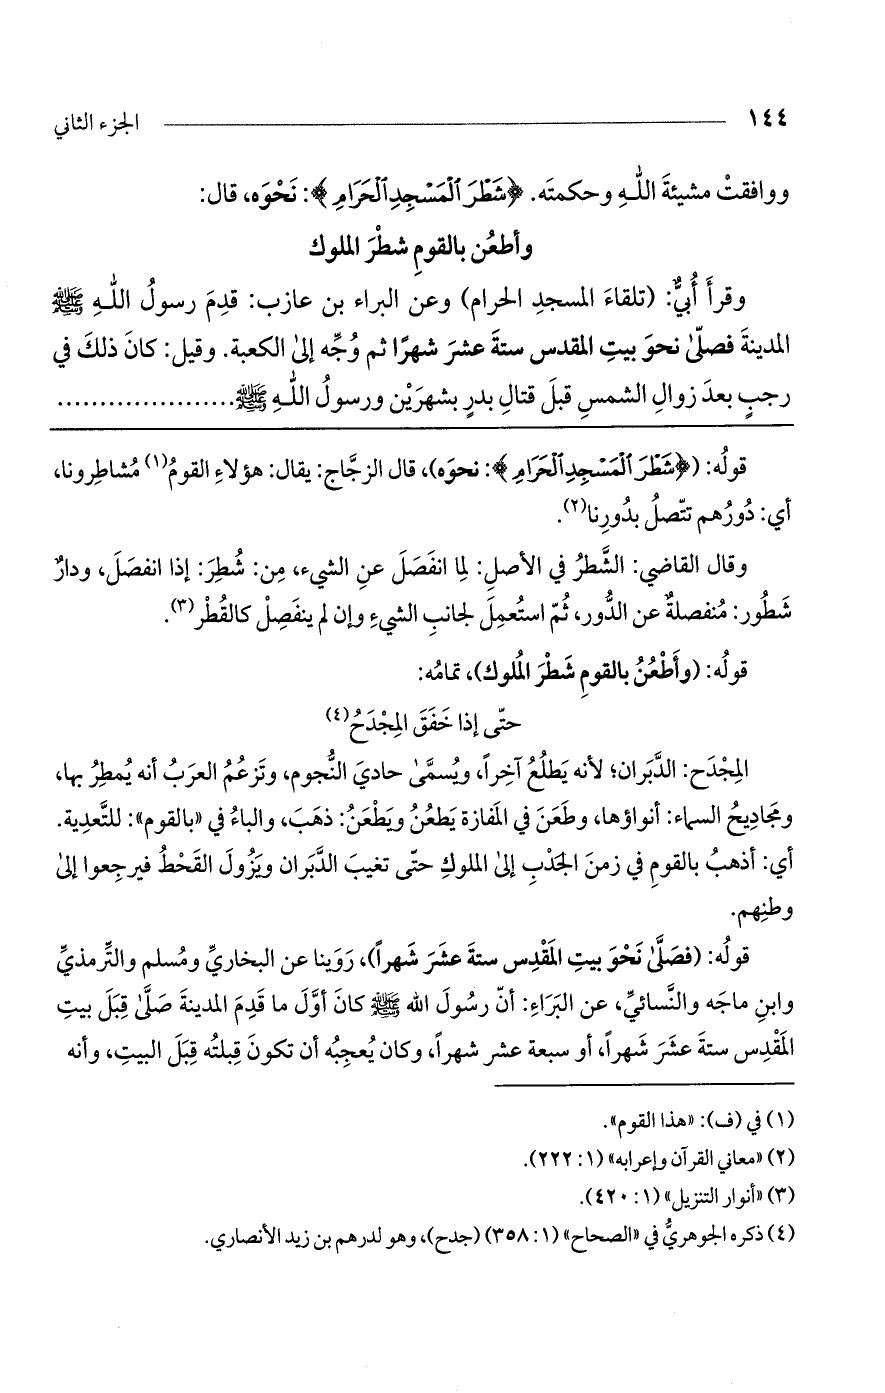 ١٤٤ الجزء الثاني
ووافقتْ مشيئةَ اللهِ وحكمتَه. ﴿شَطْرَ ٱلْمَسْجِدِ ٱلْحَرَامِ﴾: نَحْوَه، قال:
وأطعُن بالقومِ شطْرَ الملوك
وقرأَ أُبيٌّ: (تلقاءَ المسجدِ الحرام) وعن البراء بن عازب: قدِمَ رسولُ اللهِ ﷺ
المدينةَ فصلّى نحوَ بيتِ المقدس ستةَ عشرَ شهرًا ثم وُجِّه إلى الكعبة. وقيل: كانَ ذلكَ في
رجبٍ بعدَ زوالِ الشمسِ قبلَ قتالِ بدرٍ بشهرَيْن ورسولُ اللهِ ﷺ....................
قولُه: (﴿شَطْرَ ٱلْمَسْجِدِ ٱلْحَرَامِ﴾: نحوَه)، قال الزجَّاج: يقال: هؤلاءِ القومُ(١) مُشاطِرونا،
أي: دُورُهم تتّصلُ بدُورِنا(٢).
وقال القاضي: الشَّطرُ في الأصلِ: لِما انفَصَلَ عنِ الشيء، مِن: شُطِرَ: إذا انفصَلَ، ودارٌ
شَطُور: مُنفصلةٌ عن الدُّور، ثُمّ استُعمِلَ لجانبِ الشيءِ وإن لم ينفَصِلْ كالقُطْر(٣).
قولُه: (وأَطْعُنُ بالقومِ شَطْرَ المُلوك)، تمامُه:
حتّى إذا خَفَقَ المِجْدَحُ(٤)
المِجْدَح: الدَّبَران؛ لأنه يَطلُعُ آخِراً، ويُسمَّى حاديَ النُّجوم، وتَزعُمُ العرَبُ أنه يُمطِرُ بها،
ومَجَادِيحُ السماء: أنواؤها، وطَعَنَ في المَفازة يَطعُنُ ويَطْعَنُ: ذهَبَ، والباءُ في «بالقوم»: للتَّعدِية.
أي: أذهبُ بالقومِ في زمنَ الجَدْبِ إلى الملوكِ حتّى تغيبَ الدَّبَران ويَزُولَ القَحْطُ فيرجِعوا إلى
وطنِهم.
قولُه: (فصَلَّى نَحْوَ بيتِ المَقْدِس ستةَ عشَرَ شَهراً)، رَوَينا عن البخاريِّ ومُسلم والتِّرمذيِّ
وابنِ ماجَه والنَّسائيِّ، عن البَرَاءِ: أنّ رسُولَ الله ﷺ كانَ أوَّلَ ما قَدِمَ المدينةَ صَلَّى قِبَلَ بيتِ
المَقْدِس ستةَ عشَرَ شَهراً، أو سبعةَ عشر شهراً، وكان يُعجِبُه أن تكونَ قِبلتُه قِبَلَ البيتِ، وأنه
(١) في (ف): «هذا القوم».
(٢) «معاني القرآن وإعرابه» (١: ٢٢٢).
(٣) «أنوار التنزيل» (١: ٤٢٠).
(٤) ذكره الجوهريُّ في «الصحاح» (١: ٣٥٨) (جدح)، وهو لدرهم بن زيد الأنصاري.